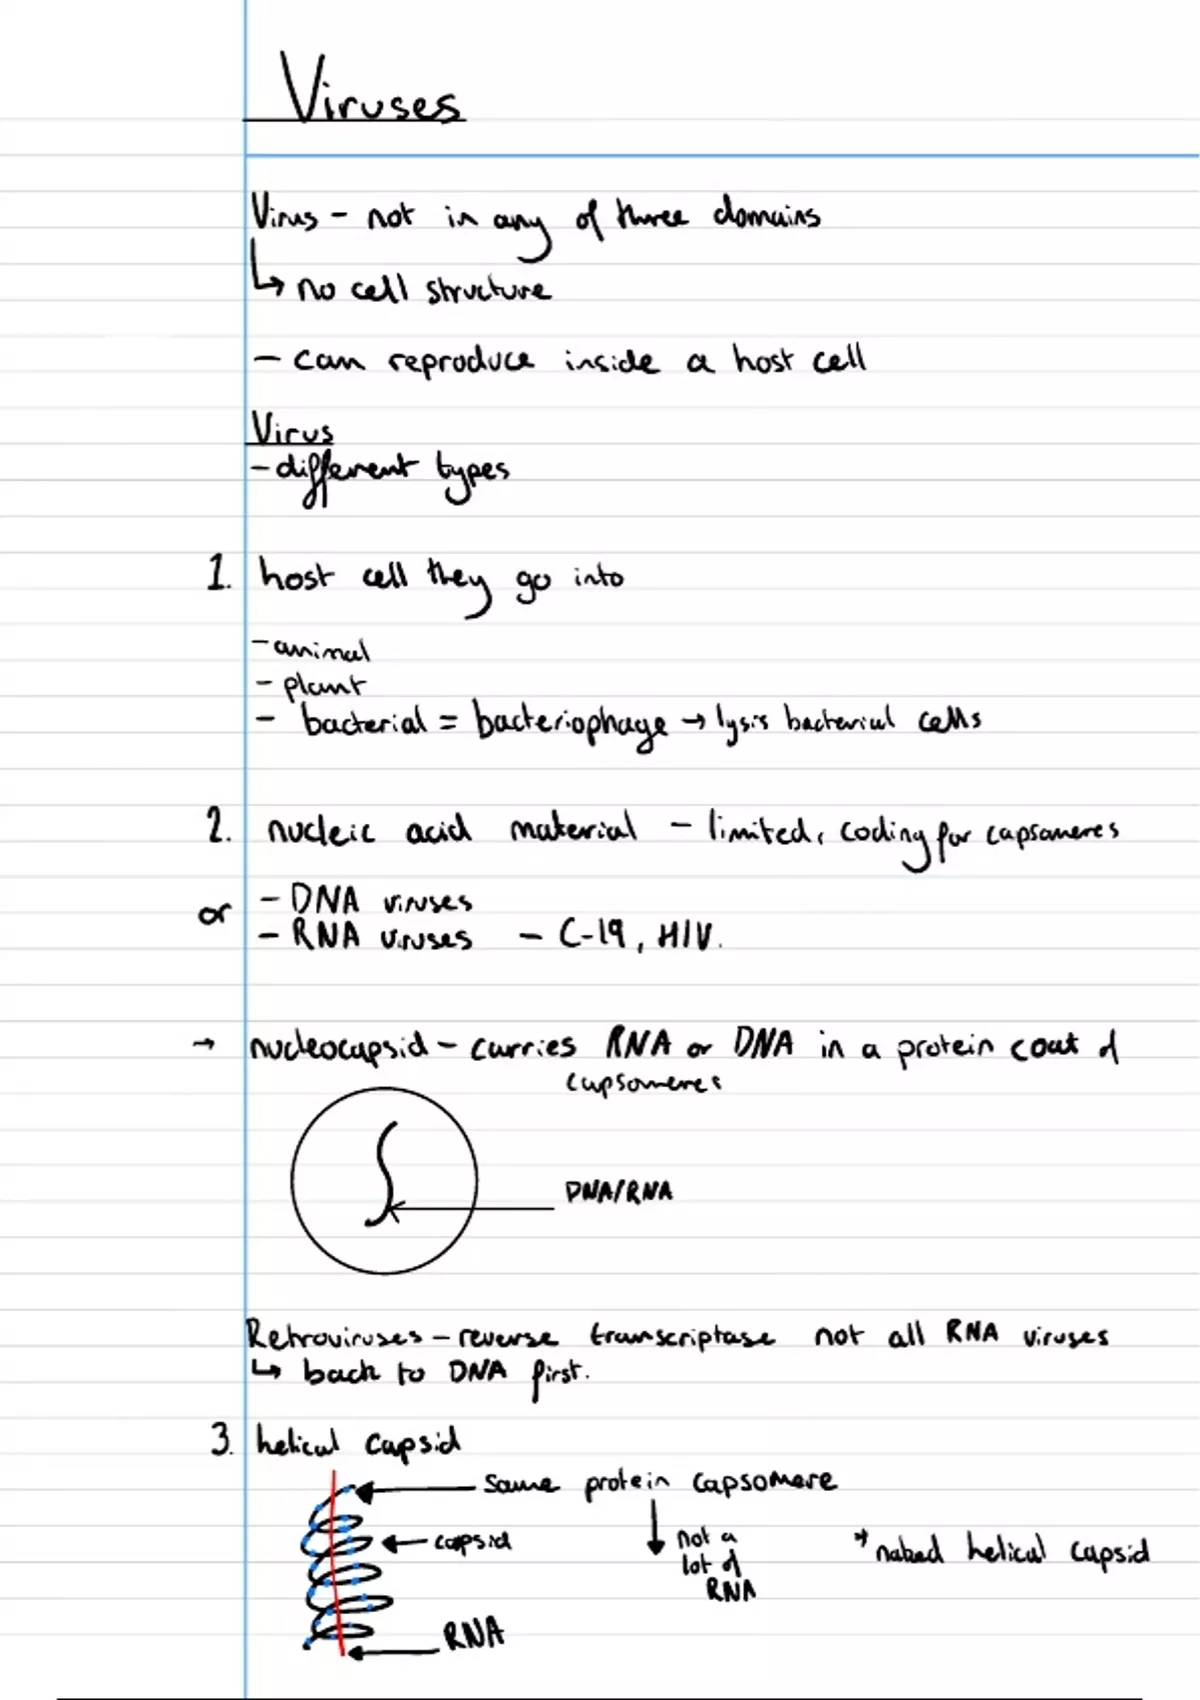 Viruses
Virus - not in any of three domains
↳ no cell structure
- can reproduce inside a host cell
Virus
- different types
1. host cell they go into
- animal
- plant
- bacterial = bacteriophage → lysis bacterial cells
2. nucleic acid material - limited, coding for capsomeres
- DNA viruses
or
- RNA viruses - C-19, HIV.
→ nucleocapsid - carries RNA or DNA in a protein coat of
capsomeres
DNA/RNA
Retroviruses - reverse transcriptase not all RNA viruses
↳ back to DNA first.
3. helical capsid
same protein capsomere
capsid
not a
lot of
RNA
→ naked helical capsid
RNA